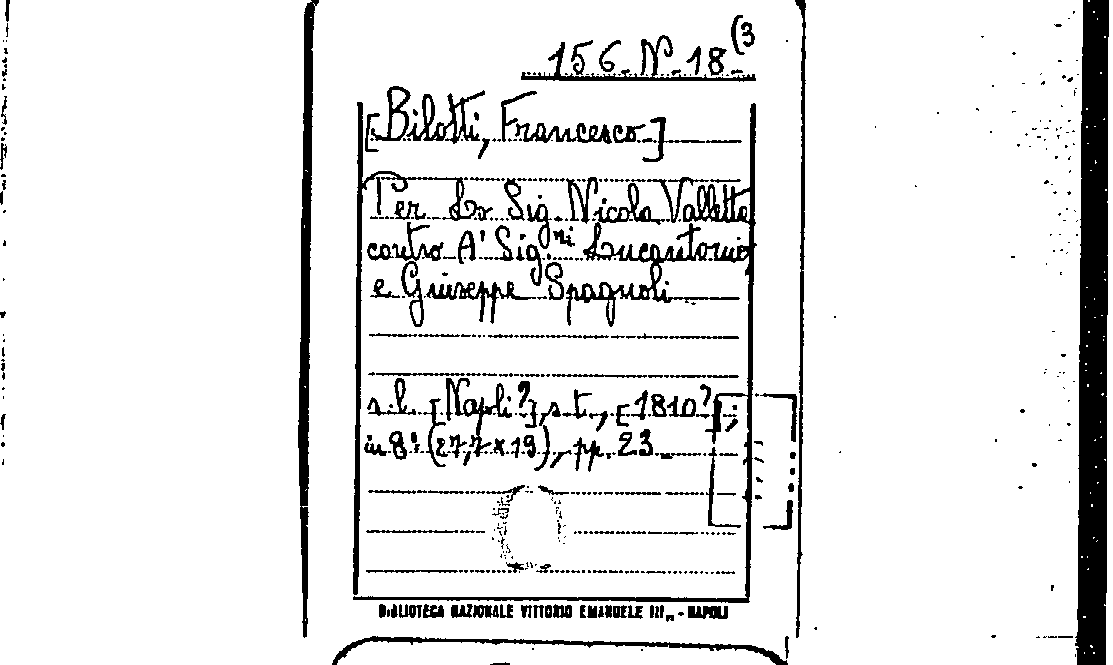 156. N. 18 (3
[Bilotti, Francesco]
Per Lo Sig. Nicola Valletta
contro A' Sig.ni Lucantonio,
e Giuseppe Spagnoli
s. l. [Napli?], s. t., [1810?],
in 8° (27,7 x 19), pp. 23
BIBLIOTECA NAZIONALE VITTORIO EMANUELE III„ - NAPOLI